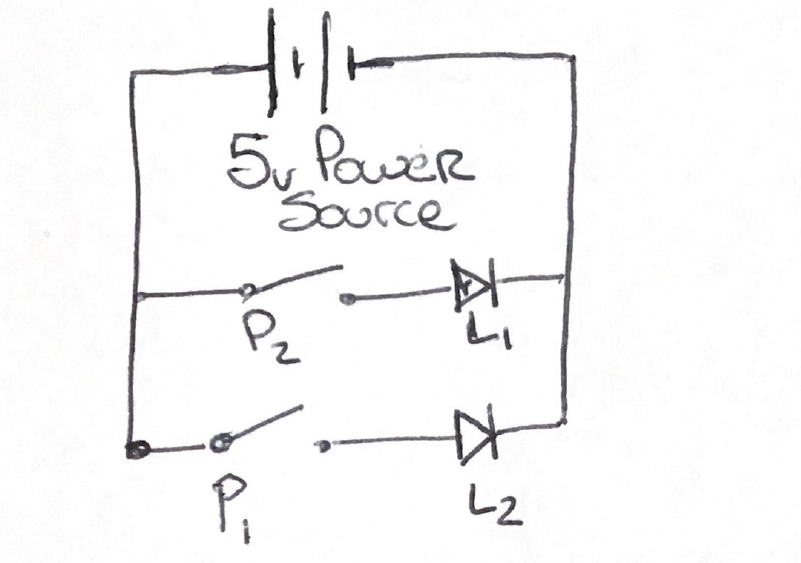 5v Power
Source
P2
L1
P1
L2